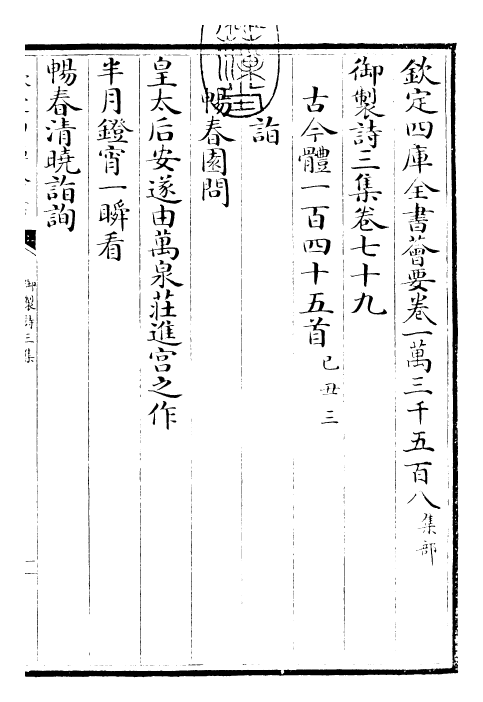 欽定四庫全書薈要卷一萬三千五百八集部
御製詩三集卷七十九
古今體一百四十五首己丑三
詣
暢春園問
皇太后安遂由萬泉莊進宮之作
半月鐙宵一瞬看
暢春清曉詣詢
御製詩三集